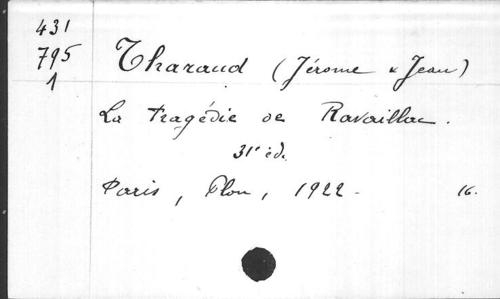 431
795
1
Tharaud (Jérome & Jean)
La tragédie de Ravaillac.
31e éd.
Paris, Plon, 1922. 16.